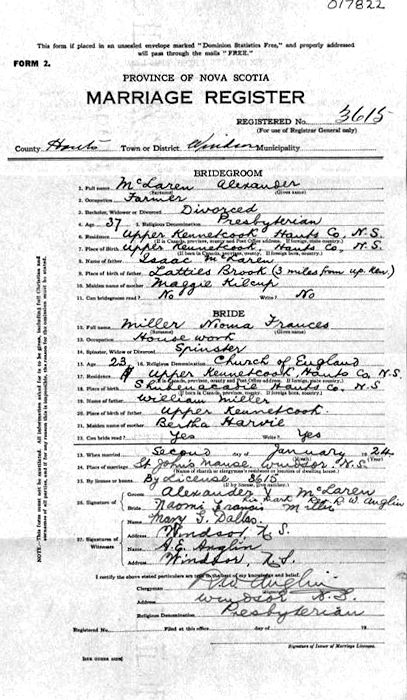 017822
This form if placed in an unsealed envelope marked "Dominion Statistics Free," and properly addressed
will pass through the mails "FREE."
FORM 2.
PROVINCE OF NOVA SCOTIA
MARRIAGE REGISTER
REGISTERED No. 3615
(For use of Registrar General only)
County Hants Town or District Windsor Municipality
BRIDEGROOM
1. Full name McLaren Alexander
(Surname) (Given name)
2. Occupation Farmer
3. Bachelor, Widower or Divorced Divorced
4. Age 37 5. Religious Denomination Presbyterian
6. Residence Upper Kennetcook Hants Co, N.S.
7. Place of Birth Upper Kennetcook, Hants Co, N.S.
8. Name of father Isaac McLaren
9. Place of birth of father Latties Brook (3 miles from up. Ken)
10. Maiden name of mother Maggie Kilcup
11. Can bridegroom read? No Write? No
BRIDE
12. Full name Miller Nioma Frances
(Surname) (Given name)
13. Occupation House work
14. Spinster, Widow or Divorced Spinster
15. Age 23 16. Religious Denomination Church of England
17. Residence Upper Kennetcook Hants Co. N.S
18. Place of birth Shubenacadie Hants Co, N.S
19. Name of father William Miller
20. Place of birth of father Upper Kennetcook.
21. Maiden name of mother Bertha Harvie
22. Can bride read? Yes Write? Yes
23. When married Second day of January 1924
24. Place of marriage St John's Manse, Windsor, N.S
(Name of church or clergyman's residence or location of dwelling house)
25. By license or banns By License 3615
(If by license, give number)
26. Signature of Groom Alexander X McLaren
his mark Rev R. W. Anglin
Bride Naomi Francis Miller
27. Signature of Witnesses Mary T. Dallas.
Address Windsor N.S.
A.E. Anglin
Address Windsor, N.S.
I certify the above stated particulars are true to the best of my knowledge and belief.
Clergyman R W Anglin
Address Windsor N.S.
Religious Denomination Presbyterian
Registered No. Filed at this office day of 19
Signature of Issuer of Marriage Licenses.
SEE OVER
NOTE.—This form must not be mutilated. All information asked for is to be given, including full Christian and
surnames of all parties, and if for any reason this is impossible, the reason for the omission must be stated.